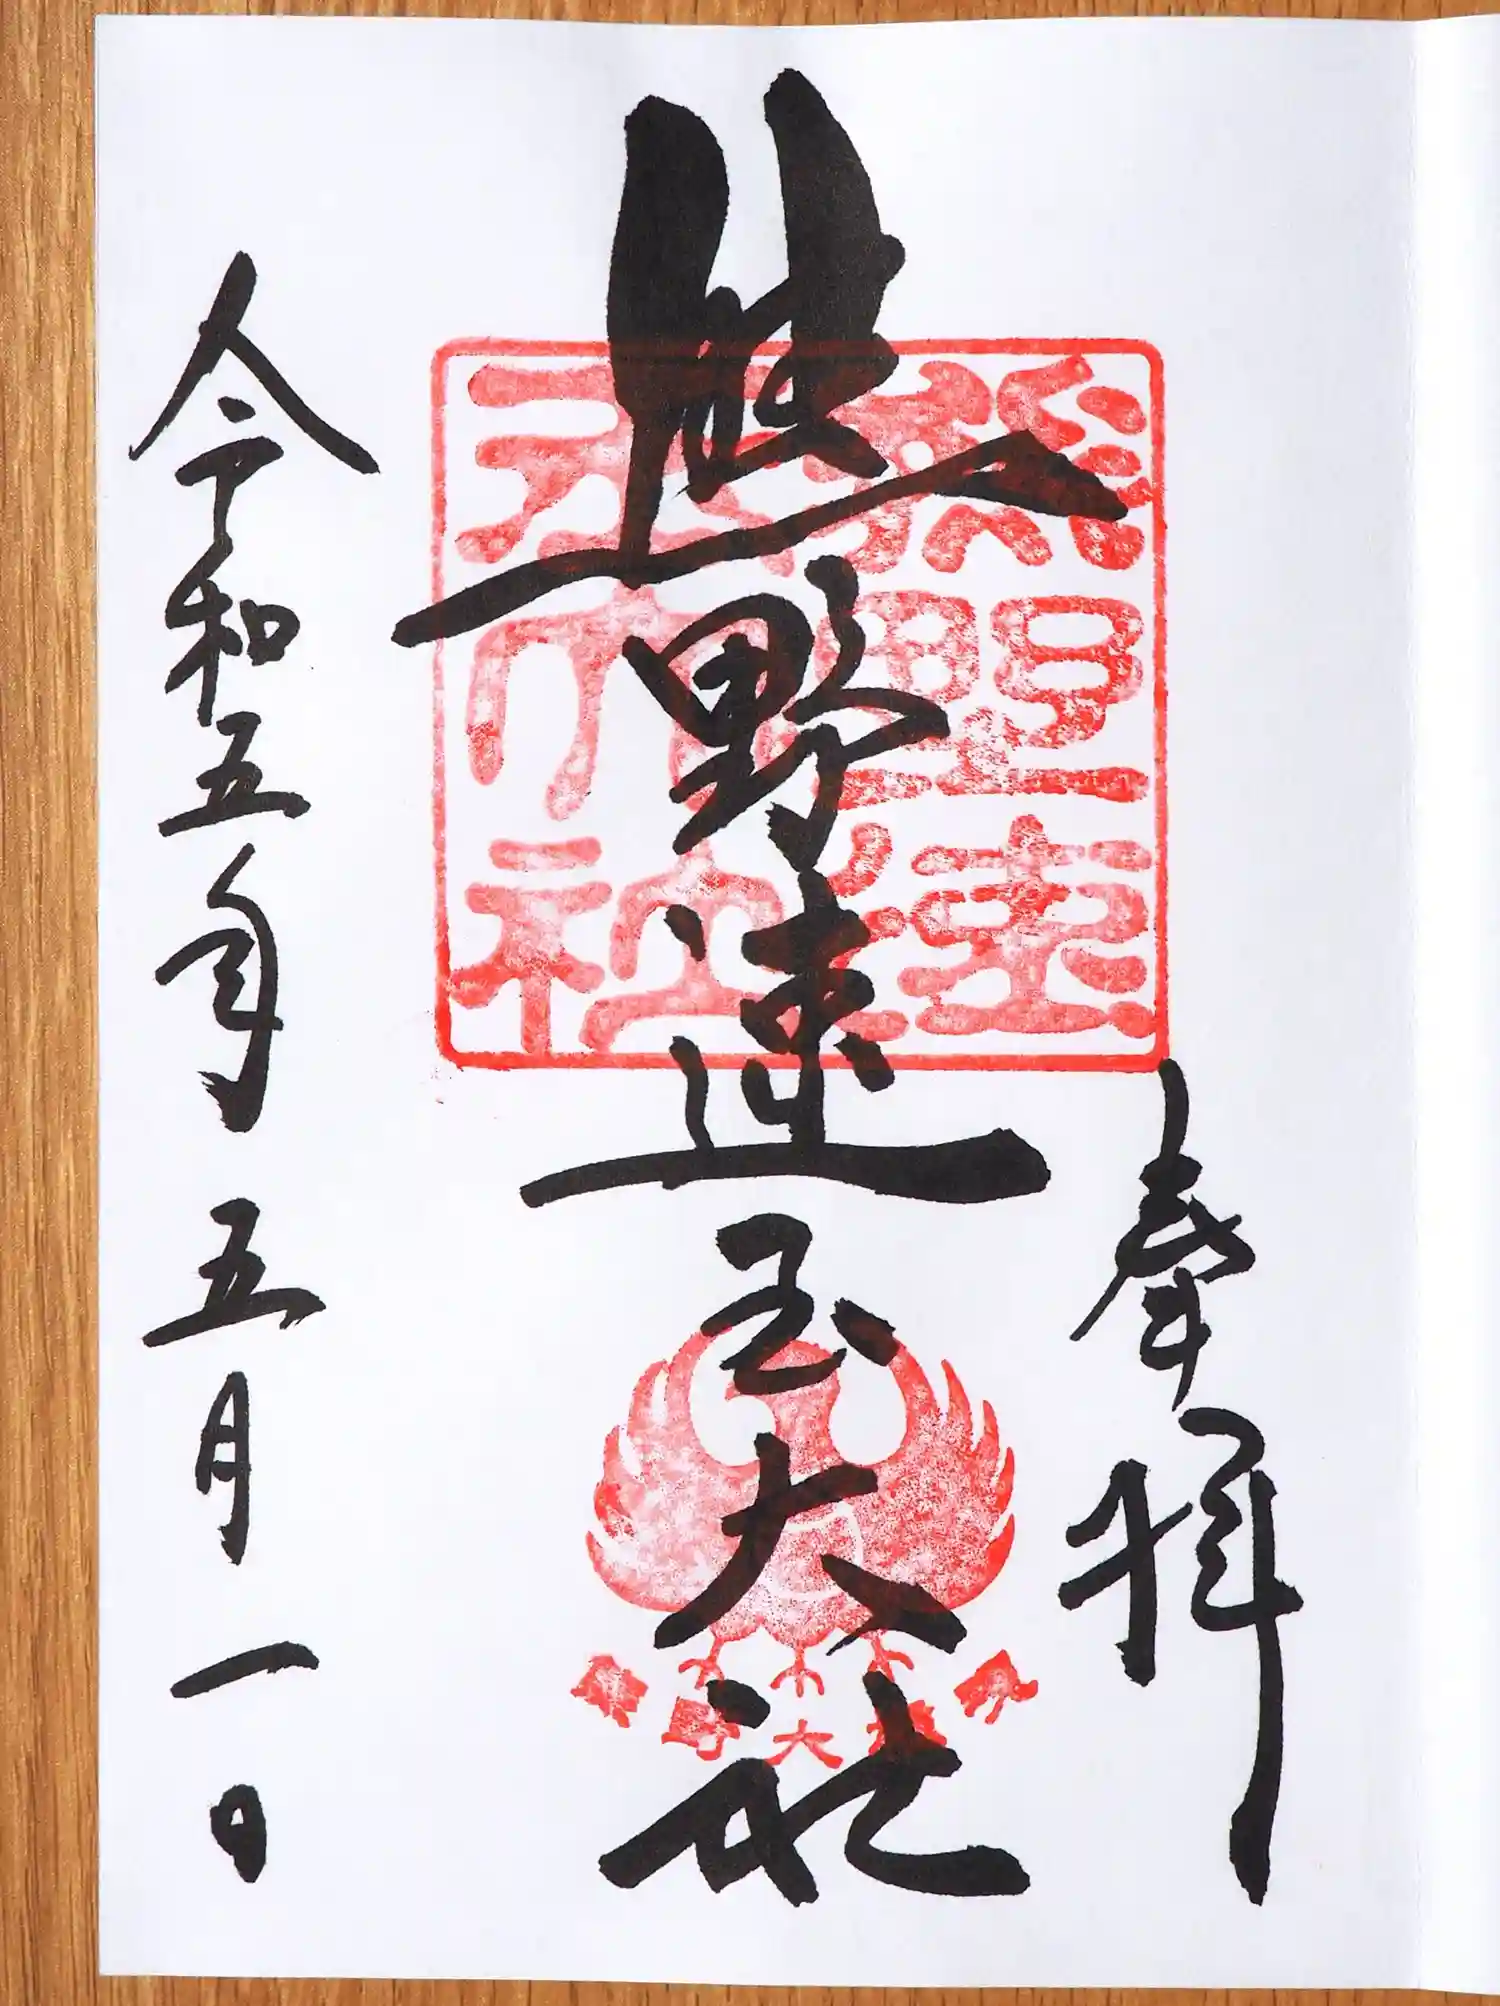 奉拝
熊野速玉大社
熊野速
玉大社
令和五年 五月 一日